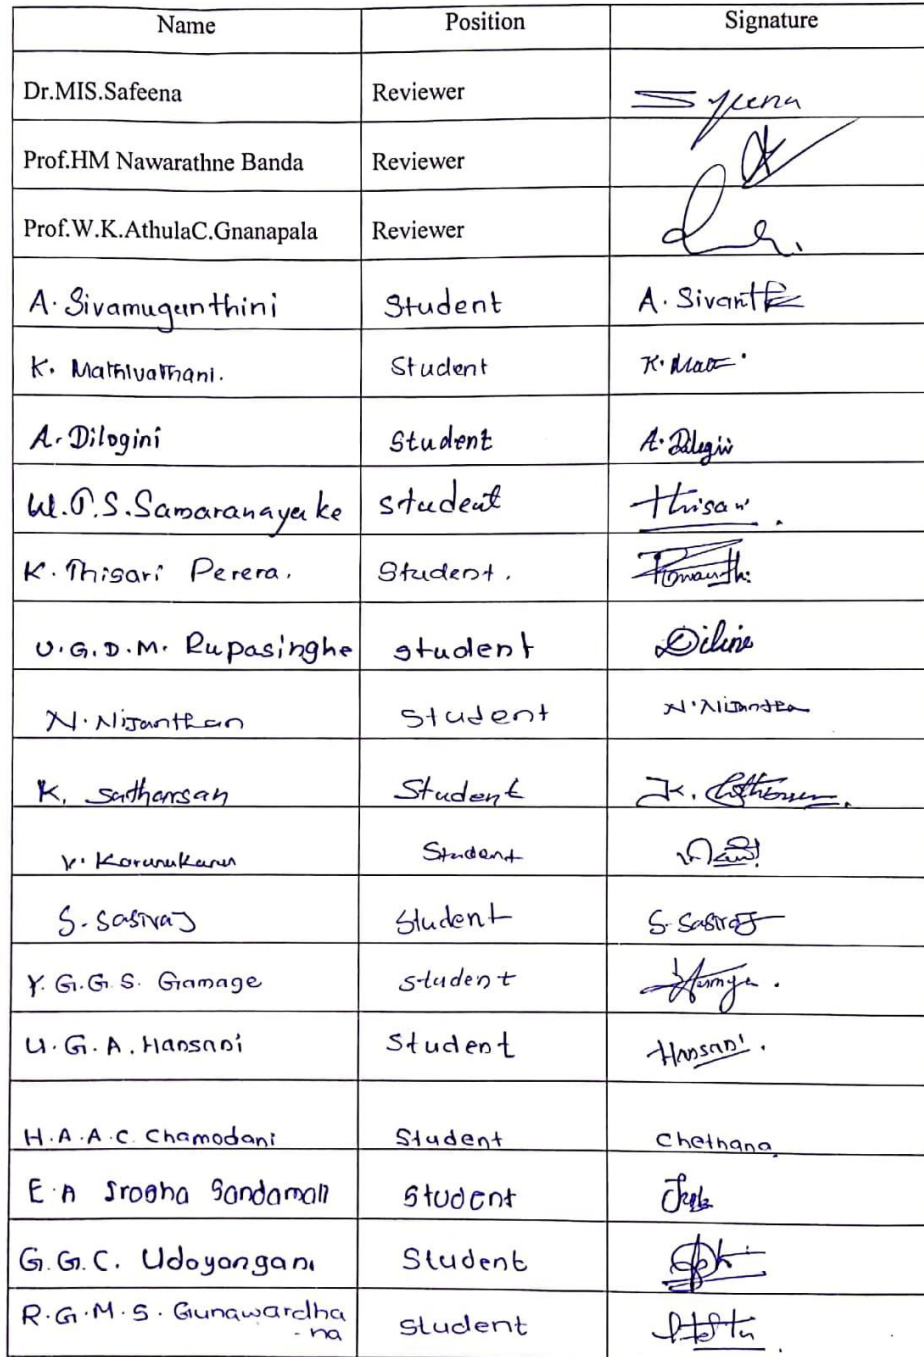 Name Position Signature
Dr.MIS.Safeena Reviewer
Prof.HM Nawarathne Banda Reviewer
Prof.W.K.AthulaC.Gnanapala Reviewer
A. Sivamugunthini Student A. Sivanth
K. Mathivathani. Student K. Mat
A. Dilogini Student A. Dilogini
W.T.S.Samaranayake student thisari
K. Thisari Perera. Student.
U.G.D.M. Rupasinghe student Dilini
N. Nijanthan Student N. Nijanthan
K. Satharsan Student K.
V. Karunukaran Student
S. Sasiraj Student S. Sasiraj
Y. G.G.S. Gamage student
U.G.A. Hansani Student Hansani.
H.A.A.C. Chamodani Student Chethana
E.A Srogha Sandamali Student
G.G.C. Udayangani Student
R.G.M.S. Gunawardha
-na student